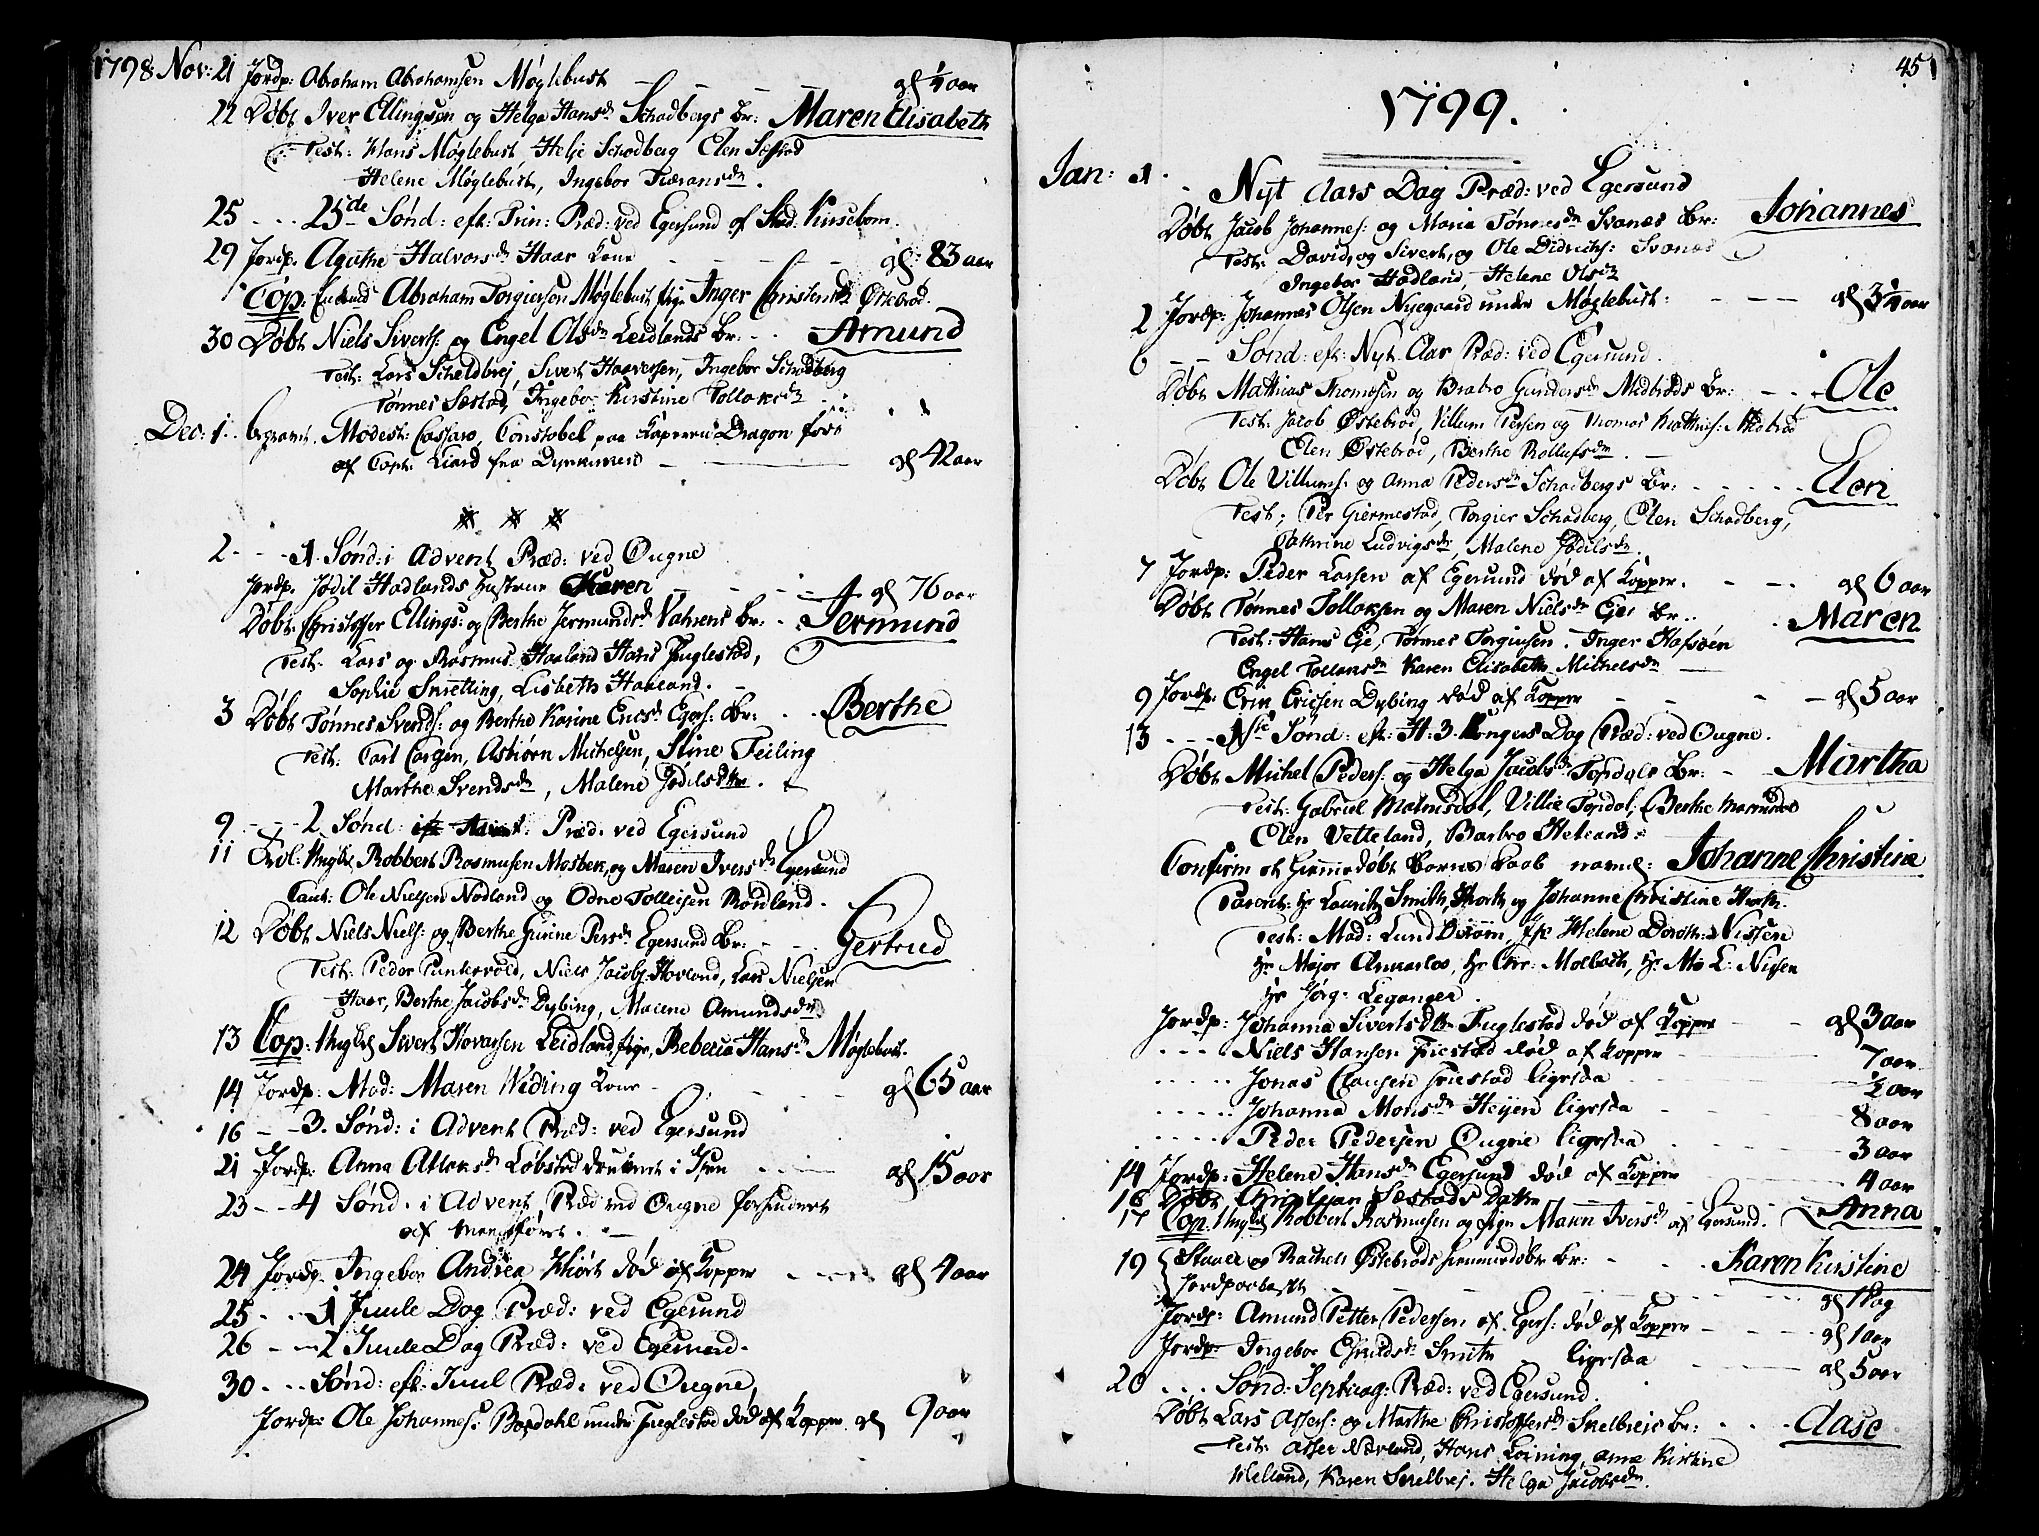 1798 Nov: 21 Jordp: Abraham Abrahamsen Møglebust gl 1/4 aar
22 Døbt Iver Ellingsen og Helga Hansdr Schadbergs Br: Maren Elisabeth
Test: Hans Møglebust, Helje Schadberg Elen
Helene Møglebust, Ingebor
25 - - - 25de Sønd: eft: Trin: Præd: ved Egersund af Stud:
29 Jordp. Agathe Halvorsdr Haar Kone gl: 83 aar
Cop: Enkemd Abraham Torgiersen Møglebust, pige Inger Christensdr Østebrød.
30 Døbt Niels Siverts: og Engel Olsdr Leidlands Br: Amund
Test: Lars Skeldbrej, Sivert Haaversen, Ingebor Schadberg
Tønnes Sæstad, Ingebor Kirstine Tollaksdr
Dec: 1. begravet. Modest: Constabel paa Kaperen Dragon
af Capt: Liard fra gl 42 aar
2 - - - 1. Sønd: i Advent Præd: ved Ougne
Jordp. Jødil Hadlands hustrue Karen gl 76 aar
Døbt Christoffer Ellings: og Berthe Jermundsdr Vahrens Br: Jermund
Test. Lars og Rasmus Haaland Hans Fuglestad,
Sophie Smetting, Lisbeth Haaland.
3 Døbt Tønnes Svends: og Berthe Karine Ericsdr Egers: Br: Berthe
Test: Carl Carlsen, Asbiørn Michelsen, Stine Feiling
Marthe Svendsdr, Malene Jødilsdtr.
9 - - - 2 Sønd: Præd: ved Egersund
11 Trol: Ungkl Robbert Rasmusen Mosbek, og Maren Iversdr Egersund
Caut: Ole Nielsen Nodland og Odne Tolleisen
12 Døbt Niels Niels: og Berthe Gurine Persdr Egersund Br: Gertrud
Test: Peder Puntervold, Niels Jacobs: Hovland, Lars Nielsen
Haar, Berthe Jacobsdr Dybing, Malene Amundsdr
13 Cop: Ungkl Sivert Hovarsen Leidland, pige, Rebecca Hansdr Møglebust.
14 Jordp: Mad: Maren Weding Kone - gl 65 aar
16 - - 3. Sønd: i Advent Præd: ved Egersund
21 Jordp: Anna Atlaksdr Løbstad druknet i Isen gl 15 aar
23 - - 4 Sønd. i Advent, Præd ved Ougne forhindret
af
24 Jordp. Ingebor Andrea Hiort død af Kopper gl 4 aar
25 - - 1 Juule Dag Præd: ved Egersund
26 - - 2 Juule Dag Præd: ved Egersund.
30 - - Sønd: eft: Juul Præd: ved Ougne,
Jordp: Ole Johannes: under Fuglestad død af Kopper gl 9 aar
45
1799.
Jan: 1. Nyt Aars Dag Præd: ved Egersund
Døbt Jacob Johannes: og Maria Tønnesdr Svanæs Br: Johannes
Test: David, og Sivert, og Ole Didrichs: Svanæs
Ingebor Hadland, Helene Olsdr
2 Jordp: Johannes Olsen Nyegaard under Møglebust: gl 3 1/4 aar
6 - - Sønd: eft: Nyt Aar Præd: ved Egersund.
Døbt Mathias Thomesen og Brabro Gundersdr Medbrøds Br: Ole
Test: Jacob Østebrød, Villum Persen og Thomas Mathis: Medbrød
Elen Østebrød, Berthe Rollufsdr.
Døbt Ole Villums: og Anna Pedersdr Schadbergs Br: Elen
Test: Per Giermestad, Torgier Schadberg, Elen Schadberg,
Cathrine Ludvigsdr, Malene Jødilsdr.
7 Jordp: Peder Larsen af Egersund død af Kopper. gl 6 aar
Døbt Tønnes Tollaksen og Maren Nielsdr Eje Br: Maren
Test: Hans Eje, Tønnes Torgiersen. Inger Hafsøen
Engel Tollaksdr Karen Elisabeth Michelsdr
9 Jordp: Eric Ericsen Dybing død af Kopper gl 5 aar
13 - - - 1ste Sønd: eft: H: 3. Kongers Dag Præd: ved Ougne.
Døbt Michel Peders: og Helga Jacobsdr Topdals Br: Martha
Test: Gabriel Malmsdal, Villie Topdal, Berthe
Elen Vetteland, Barbro Heleland:
Confirm et Hiemmedøbt Barns Daab navnl: Johanne Christine
Parent: Hr Lauritz Smith, Hiorth og Johanne Christine Hiorth.
Test: Mad: Lund Jfr Helene Doroth: Nissen
Hr Major Hr Chr: Molbach, Hr. Mo L: Nissen
Hr Jørg: Leganger.
Jordp: Johanna Sivertsdtr Fuglestad død af Kopper gl 3 aar
- - - - Niels Hansen Friestad død af Kopper 7 aar
- - - - - Jonas Clausen Friestad ligesaa 1/2 aar
- - - - - Johanna Monsdr Heijen ligesaa 8 aar
- - - - - Peder Pedersen Ougne ligesaa 3 aar
14 Jordp: Helene Hansdr Egersund død af Kopper 4 aar
16 Døbt Christian Sæstads Datter Anna
17 Cop. Ungkl Robbert Rasmusen og pige Maren Iversdr af Egersund.
19 og Rachels Østebrøds hiemmedøbte Br: Karen Kirstine
Jordpaakast gl 1 Dag
Jordp: Amund Petter Pedersen af Egers: død af Kopper gl 1 aar
Jordp Ingebor Smith ligesaa gl 5 aar
20 - - - Sønd: Septuag: Præd: ved Egersund.
Døbt Lars Assers: og Marthe Christophersdr Skelbreis Br: Aase
Test: Asser Nærland, Hans Leining, Ane Kirstine
Helland, Karen Skelbrej. Helga Jacobsdr.